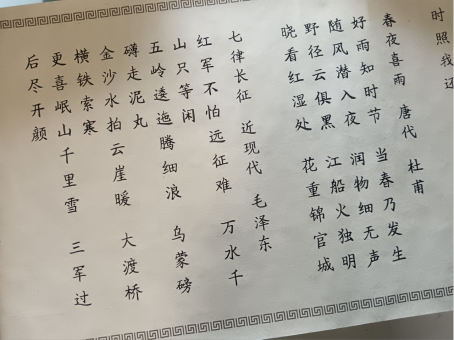 时照我还
春夜喜雨 唐代 杜甫
好雨知时节 当春乃发生
随风潜入夜 润物细无声
野径云俱黑 江船火独明
晓看红湿处 花重锦官城
七律长征 近现代 毛泽东
红军不怕远征难 万水千
山只等闲
五岭逶迤腾细浪 乌蒙磅
礴走泥丸
金沙水拍云崖暖 大渡桥
横铁索寒
更喜岷山千里雪 三军过
后尽开颜